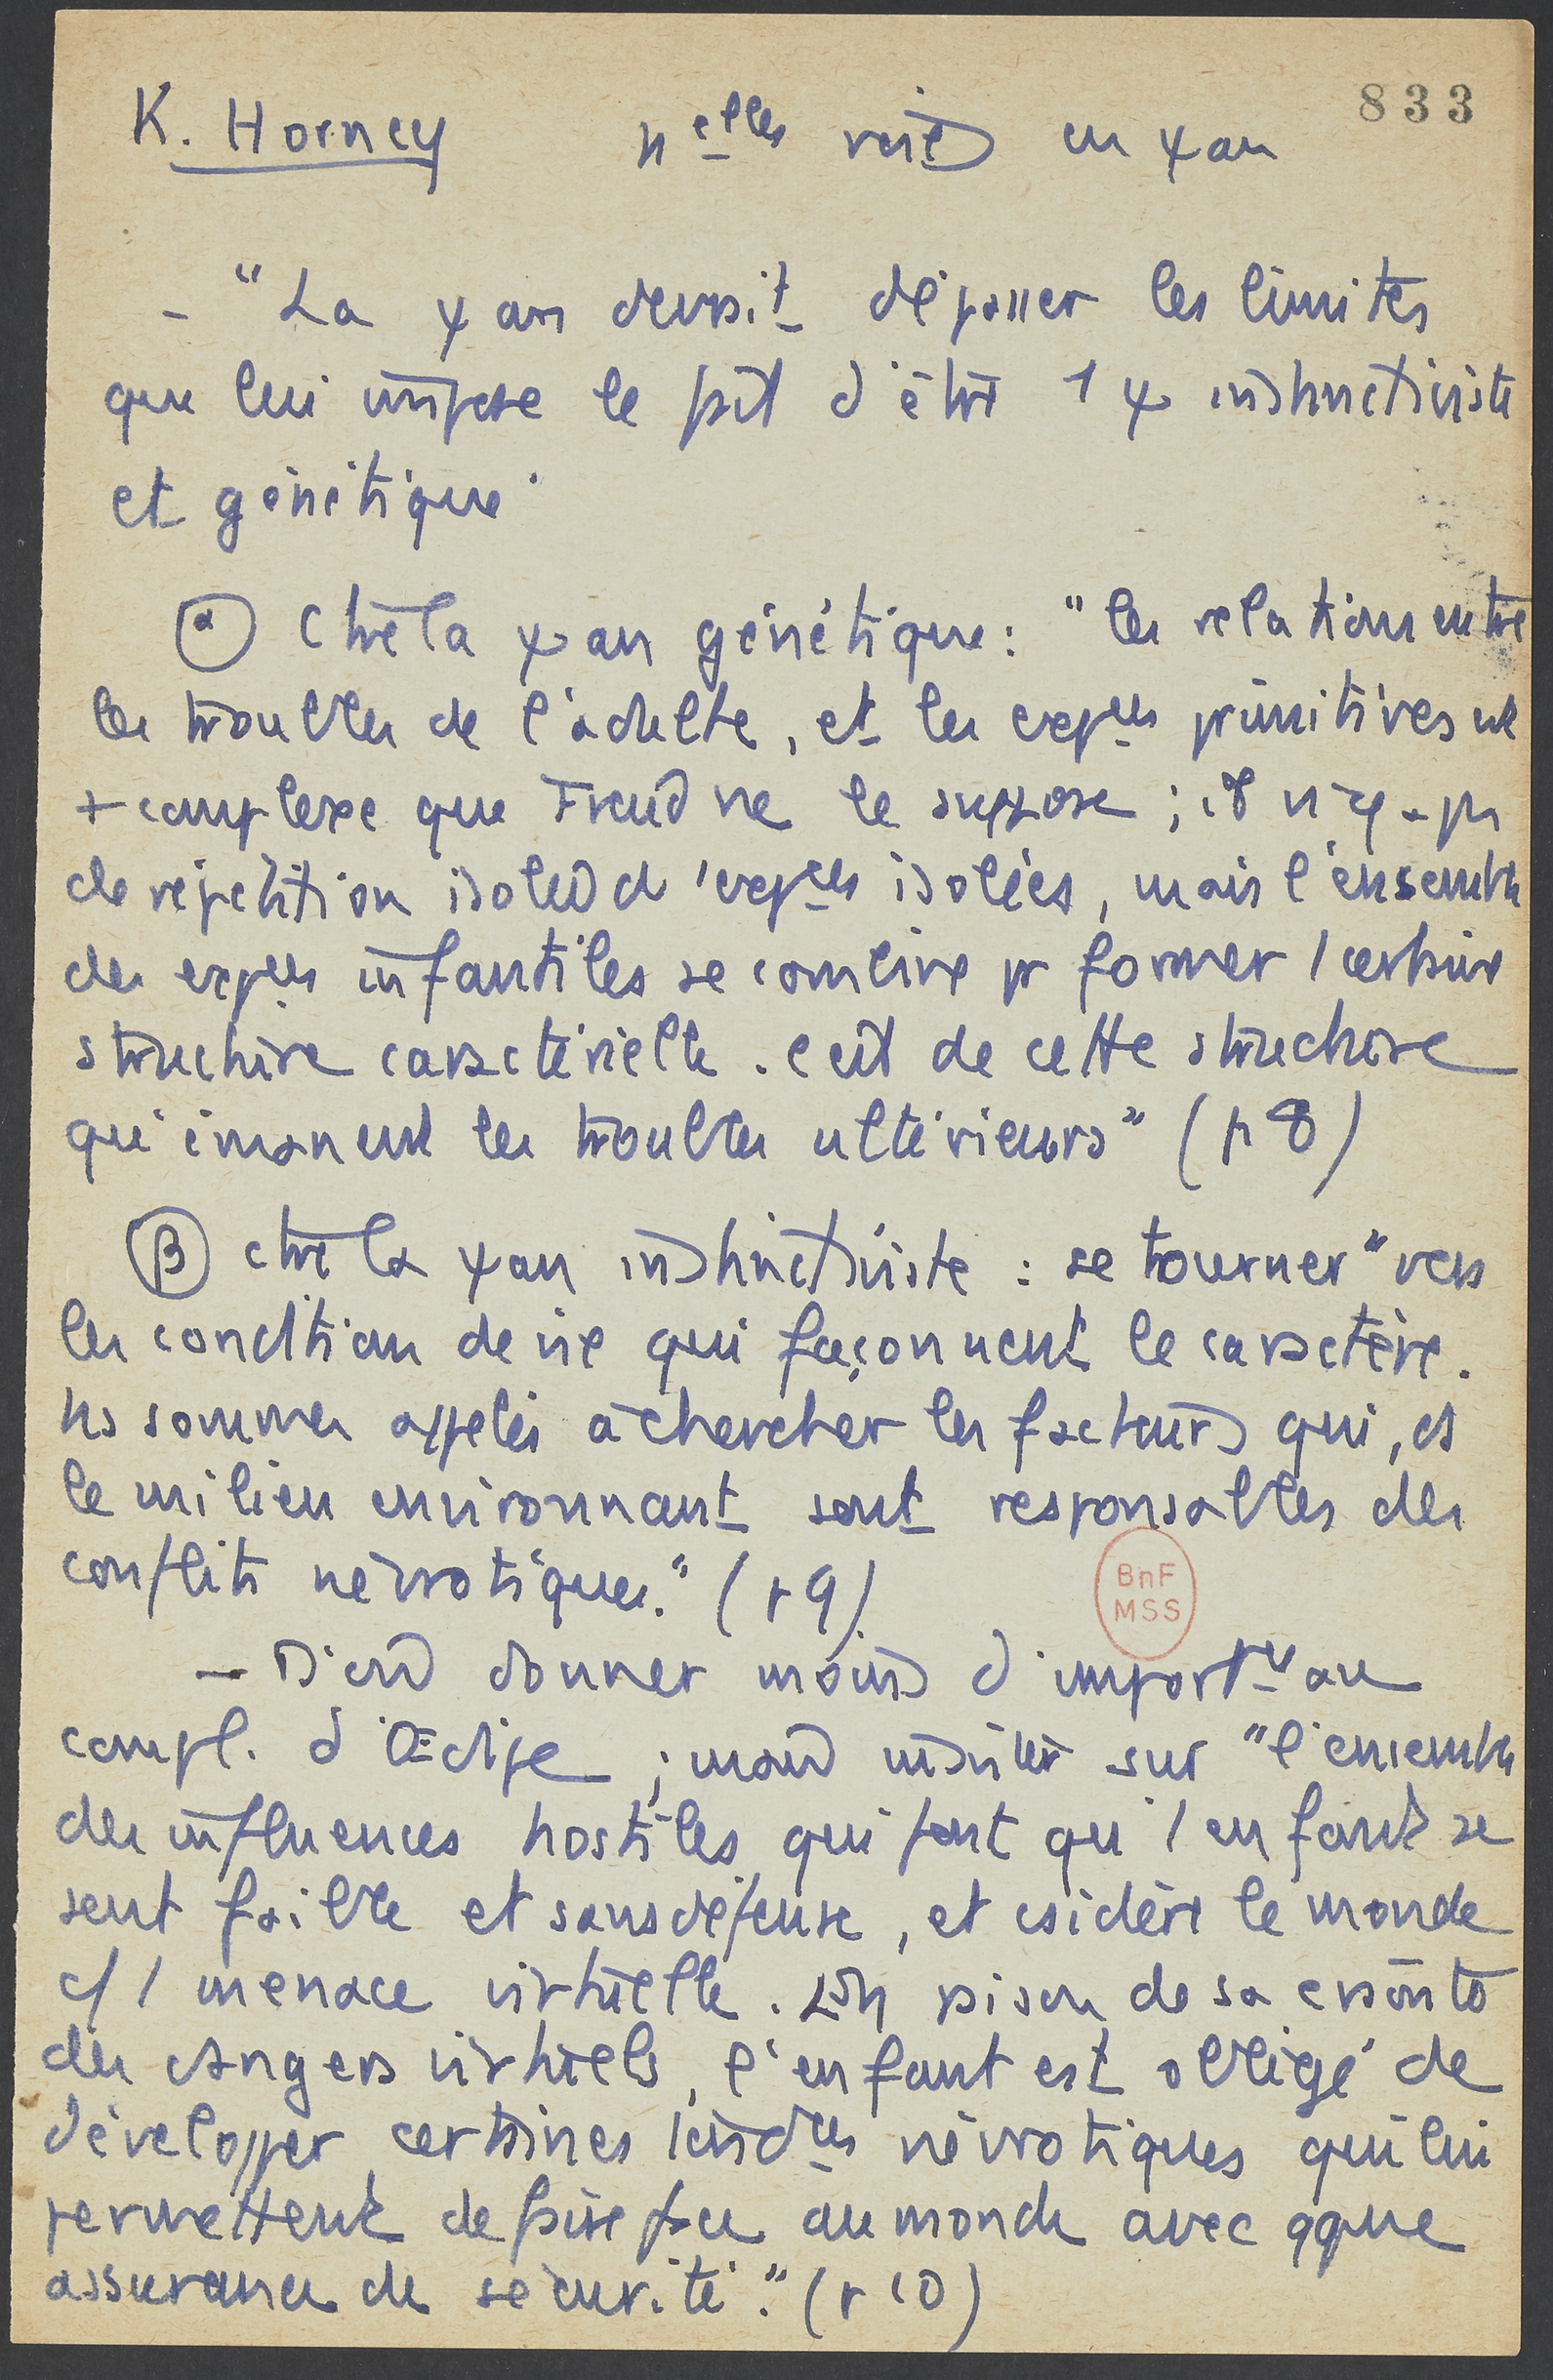 833
K. Horney nelles voies en ψan
- "La ψan devrait dépasser les limites
que lui impose le fait d'être 1 ψ instinctiviste
et génétique"
(α) Ctre la ψan génétique : "les relations entre
les troubles de l'adulte, et les expces primitives st
+ complexe que Freud ne le suppose ; il n'y a pas
de répétition isolée d'expces isolées, mais l'ensemble
des expces infantiles se combine pr former 1 certaine
structure caractérielle. c'est de cette structure
qu'émanent les troubles ultérieurs" (p 8)
(β) ctre la ψan instinctiviste : se tourner "vers
les conditions de vie qui façonnent le caractère.
ns sommes appelés à chercher les facteurs qui, ds
le milieu environnant sont responsables des
conflits névrotiques." (p 9)
BnF
MSS
- D'où donner moins d'importce au
compl. d'Œdipe ; mais insister sur "l'ensemble
des influences hostiles qui font qu'1 enfant se
sent faible et sans défense, et csidère le monde
c/ 1 menace virtuelle. En raison de sa crainte
des dangers virtuels, l'enfant est obligé de
développer certaines tendces névrotiques qui lui
permettent de faire face au monde avec qque
assurance de sécurité." (p 10)